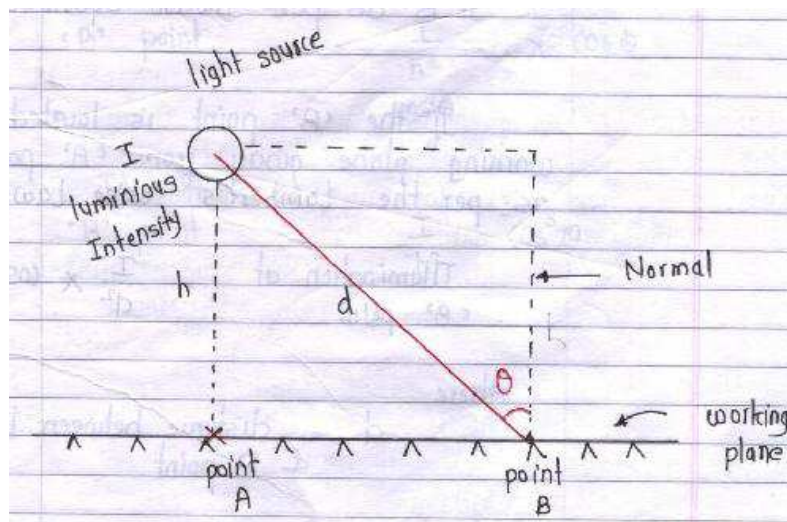 light source
I
luminious
Intensity
h
d
Normal
θ
working
plane
point
A
point
B